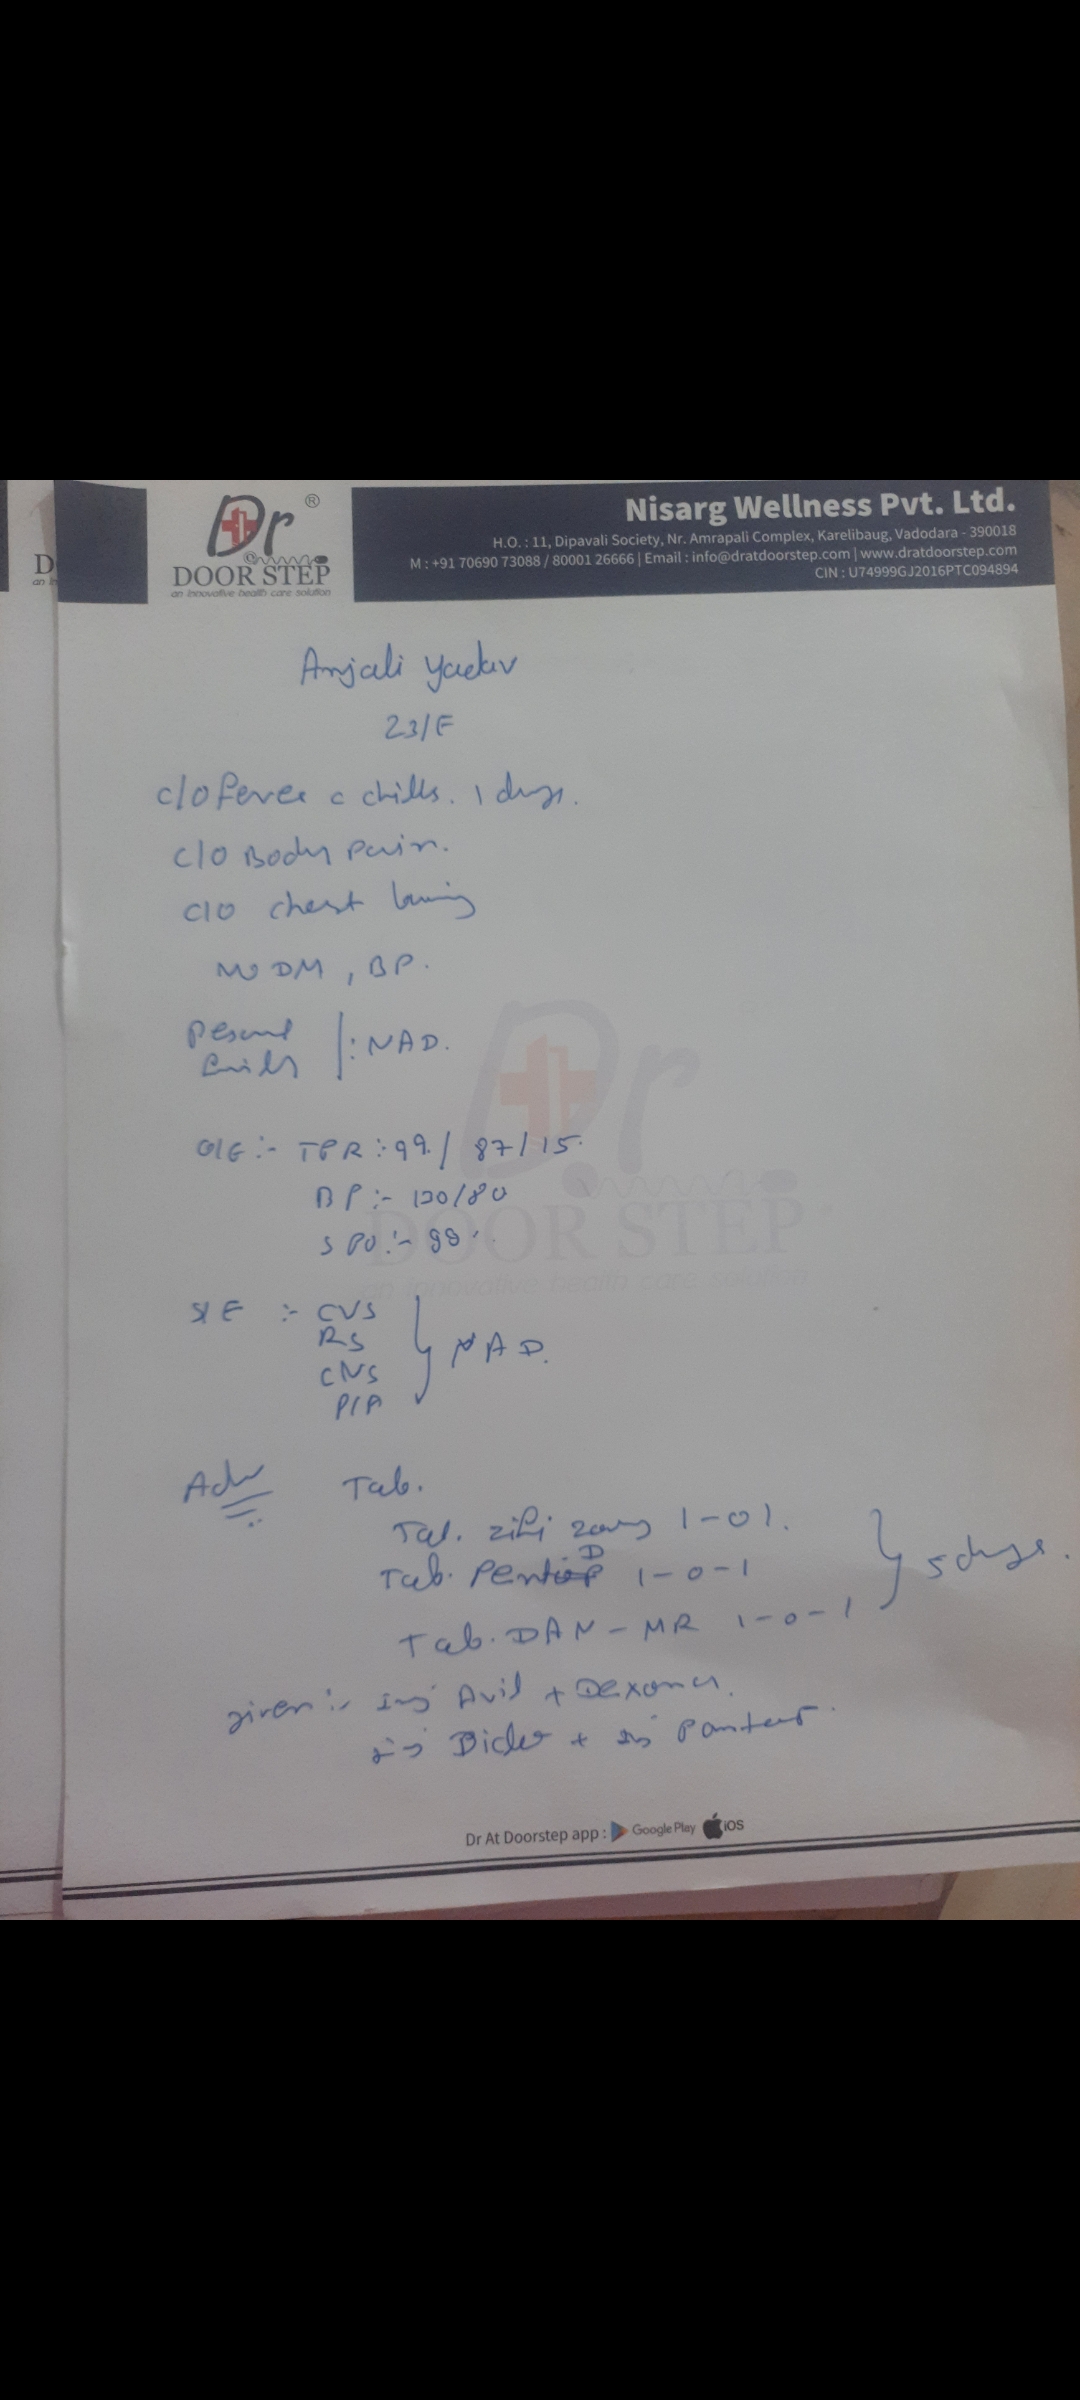 Dr ®
DOOR STEP
an innovative health care solution
Nisarg Wellness Pvt. Ltd.
H.O. : 11, Dipavali Society, Nr. Amrapali Complex, Karelibaug, Vadodara - 390018
M : +91 70690 73088 / 80001 26666 | Email : info@dratdoorstep.com | www.dratdoorstep.com
CIN : U74999GJ2016PTC094894
Anjali Yadav
23/F
c/o fever c chills. 1 days.
c/o Body Pain.
c/o chest
NO DM, BP.
: NAD.
O/E :- TPR :- 99 / 87 / 15.
BP :- 120/80
SPO :- 98
S/E :- CVS
RS
CNS
P/A
NAD.
Adv Tab.
Tab. zifi 1-01.
Tab. D 1-0-1
5 days.
Tab. DAN-MR 1-0-1
given :- inj Avil + Dexona.
inj + inj
Dr
DOOR STEP
an innovative health care solution
Dr At Doorstep app : Google Play iOS